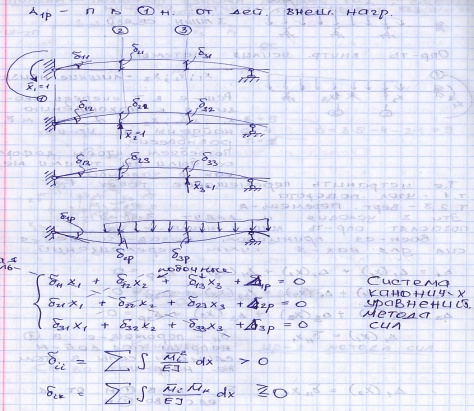 Δ₁ₚ – п в ① н. от дей. внеш. нагр.
② ③
δ₁₁ δ₂₁ δ₃₁
x̄₁=1
①
δ₁₂ δ₂₂ δ₃₂
x̄₂=1
δ₁₃ δ₂₃ δ₃₃
x̄₃=1
δ₁ₚ
δ₂ₚ δ₃ₚ
побочные
δ₁₁x₁ + δ₁₂x₂ + δ₁₃x₃ + Δ₁ₚ = 0
δ₂₁x₁ + δ₂₂x₂ + δ₂₃x₃ + Δ₂ₚ = 0
δ₃₁x₁ + δ₃₂x₂ + δ₃₃x₃ + Δ₃ₚ = 0
Система
канонич-х
уравнений
метода
сил
δᵢᵢ = ∑ ∫ M̄ᵢ²/EJ dx > 0
δᵢₖ = ∑ ∫ M̄ᵢ M̄ₖ/EJ dx ⪌ 0